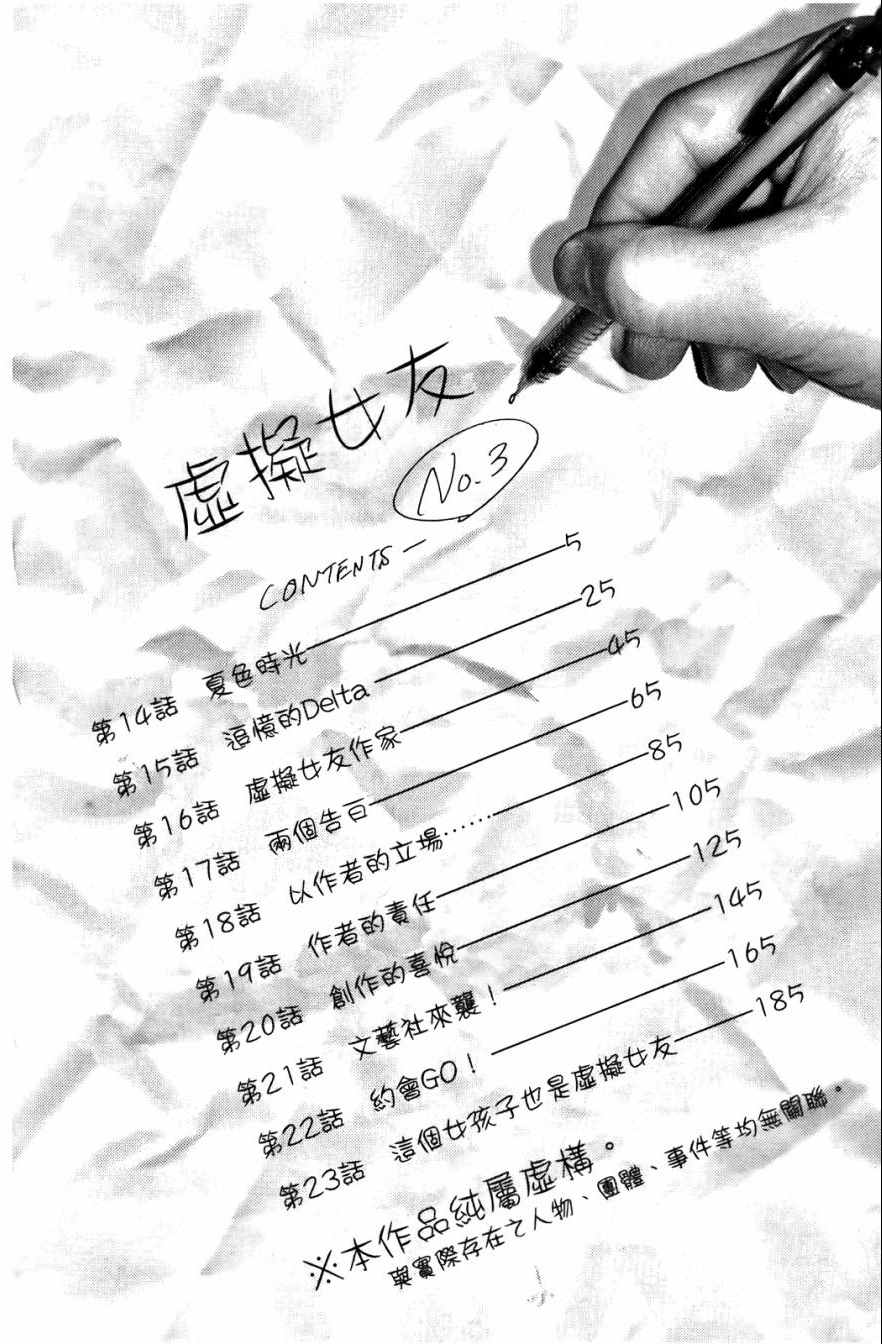 虛擬女友
No.3
CONTENTS —
第14話 夏色時光 5
第15話 追憶的Delta 25
第16話 虛擬女友作家 45
第17話 兩個告白 65
第18話 以作者的立場…… 85
第19話 作者的責任 105
第20話 創作的喜悅 125
第21話 文藝社來襲！ 145
第22話 約會GO！ 165
第23話 這個女孩子也是虛擬女友 185
※本作品純屬虛構。
與實際存在之人物、團體、事件等均無關聯。